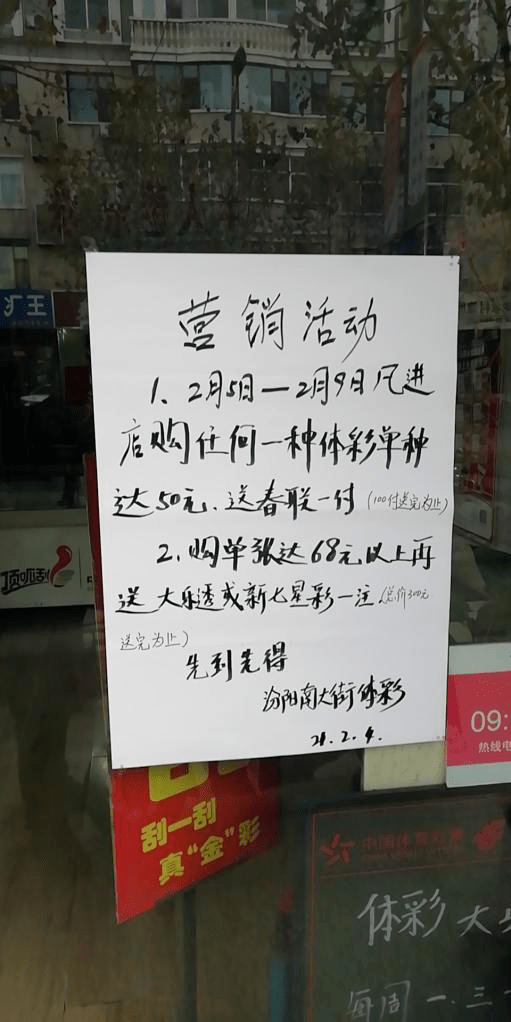 营销活动
1、2月5日—2月9日凡进
店购任何一种体彩单种
达50元、送春联一付(100付送完为止)
2、购单张达68元以上再
送大乐透或新七星彩一注(总价300元
送完为止)
先到先得
汾阳南大街体彩
21.2.4.
王
顶呱刮
09:
热线电
刮一刮
真“金”彩
中国体育彩票
体彩大
每周一、三